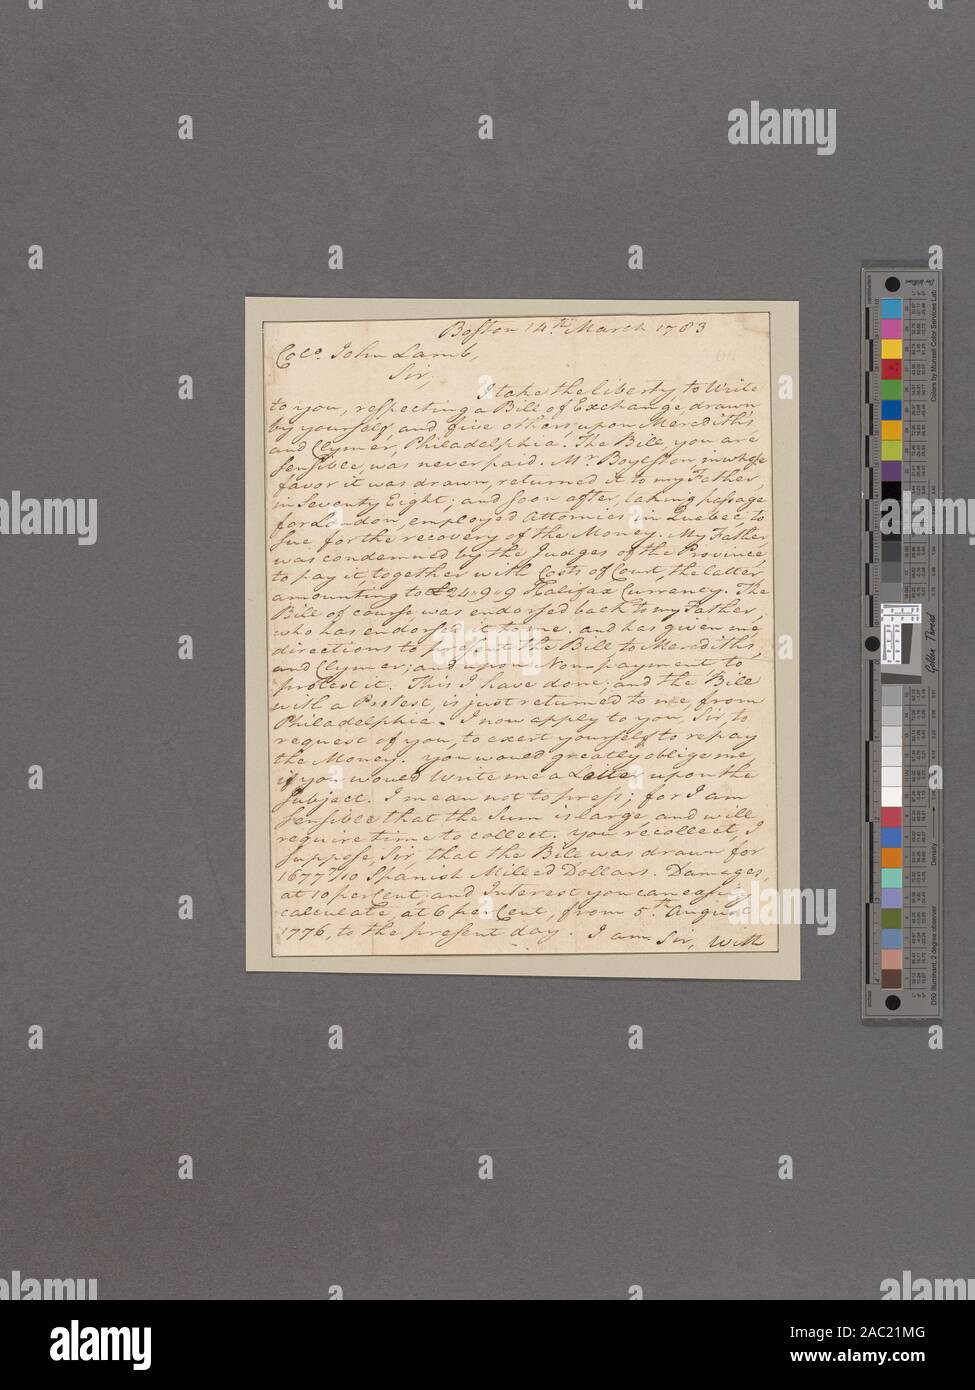 Boston 14th March 1783
Colo. John Lamb,
Sir,
I take the liberty, to Write
to you, respecting a Bill of Exchange, drawn
by yourself, and five others, upon Merediths,
and Clymer, Philadelphia. The Bill, you are
sensible, was never paid. Mr. Boylston, in whose
favor it was drawn, returned it to my Father,
in Seventy Eight; and soon after, taking passage
for London, employed Attornies, in Quebec, to
sue for the recovery of the Money. My Father
was condemned by the Judges of the Province,
to pay it, together with Costs of Court, the latter
amounting to £24"9"9 Halifax Currency. The
Bill of course was endorsed back to my Father,
who has endorsed it to me. and has given me
directions to present the Bill to Merediths,
and Clymer; and upon Non-payment to
protest it. This I have done; and the Bill
with a Protest, is just returned to me, from
Philadelphia. I now apply to you, Sir, to
request of you, to exert yourself to repay
the Money. you would greatly oblige me
if you would Write me a Letter upon the
Subject. I mean not to press; for I am
sensible that the Sum is large, and will
require time to collect. you recollect, I
suppose, Sir, that the Bill was drawn for
1677 7/10 Spanish Milled Dollars. Damages,
at 10 per Cent, and Interest you can easily
calculate, at 6 per Cent, from 5th. August
1776, to the present day. I am, Sir, With
Golden Thread
Colors by Munsell Color Services Lab
Density
D50 Illuminant, 2 degree observer
alamy
2AC21MG
www.alamy.com